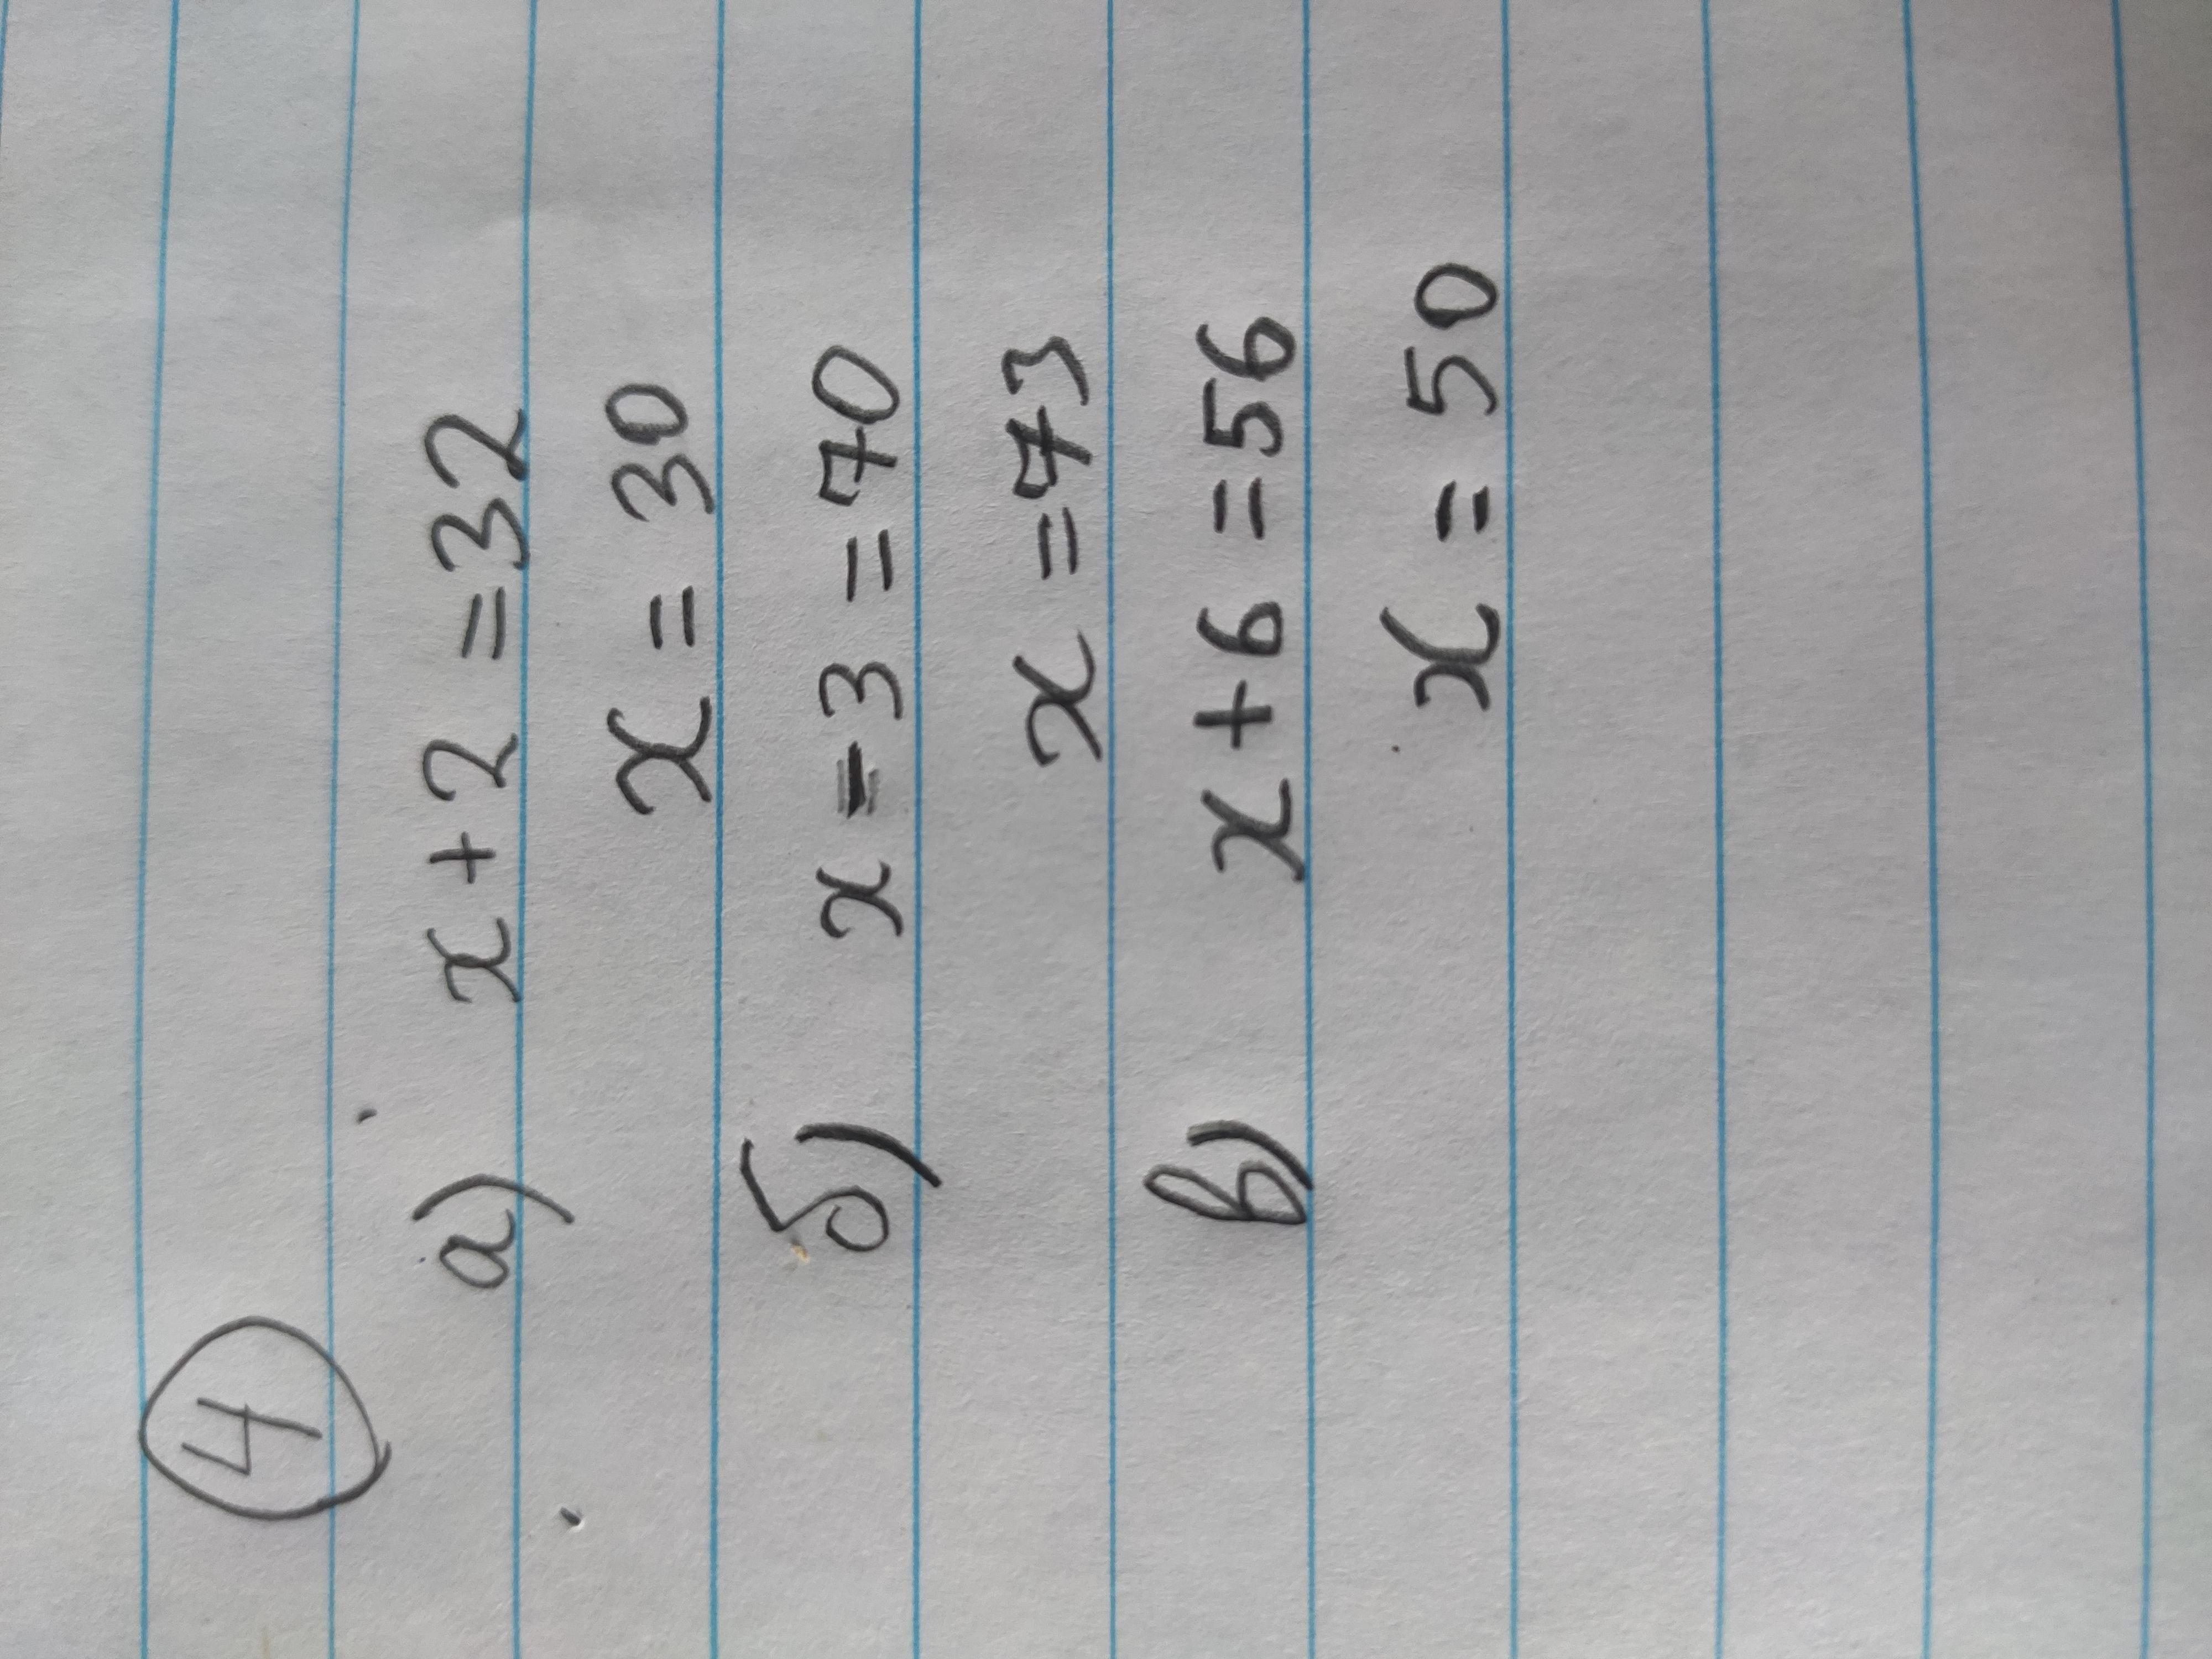 4
а) x + 2 = 32
x = 30
б) x - 3 = 70
x = 73
в) x + 6 = 56
x = 50